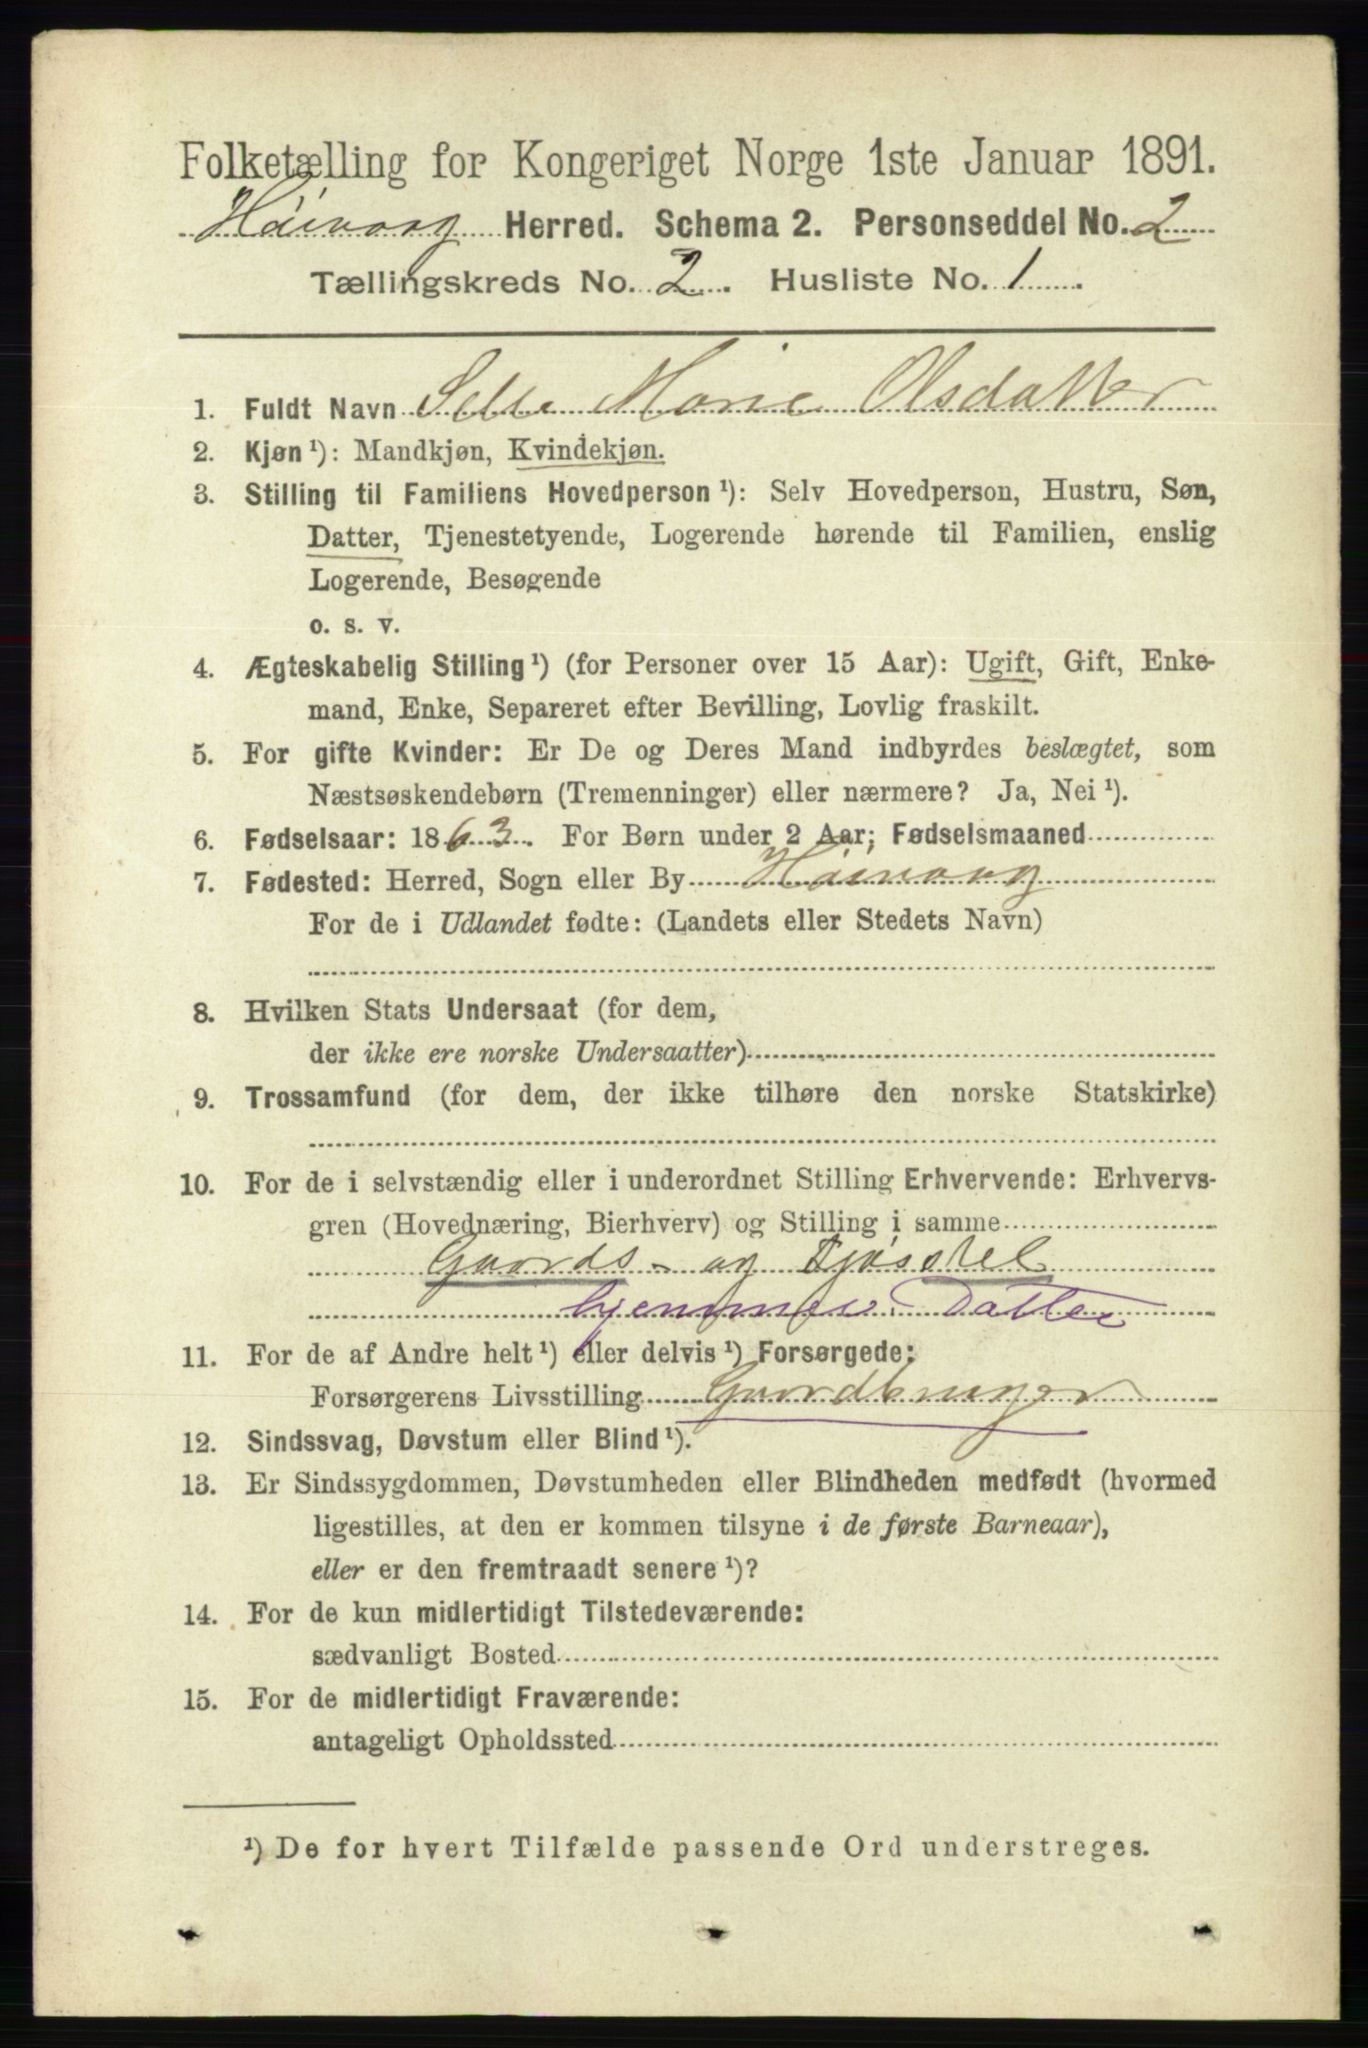 Folketælling for Kongeriget Norge 1ste Januar 1891.
Høivaag Herred. Schema 2. Personseddel No. 2
Tællingskreds No. 2. Husliste No. 1.
1. Fuldt Navn Marie Olsdatter
2. Kjøn ¹): Mandkjøn, Kvindekjøn.
3. Stilling til Familiens Hovedperson ¹): Selv Hovedperson, Hustru, Søn,
Datter, Tjenestetyende, Logerende hørende til Familien, enslig
Logerende, Besøgende
o. s. v.
4. Ægteskabelig Stilling ¹) (for Personer over 15 Aar): Ugift, Gift, Enke-
mand, Enke, Separeret efter Bevilling, Lovlig fraskilt.
5. For gifte Kvinder: Er De og Deres Mand indbyrdes beslægtet, som
Næstsøskendebørn (Tremenninger) eller nærmere? Ja, Nei ¹).
6. Fødselsaar: 1863. For Børn under 2 Aar; Fødselsmaaned
7. Fødested: Herred, Sogn eller By Høivaag
For de i Udlandet fødte: (Landets eller Stedets Navn)
8. Hvilken Stats Undersaat (for dem,
der ikke ere norske Undersaatter)
9. Trossamfund (for dem, der ikke tilhøre den norske Statskirke)
10. For de i selvstændig eller i underordnet Stilling Erhvervende: Erhvervs-
gren (Hovednæring, Bierhverv) og Stilling i samme
Gaards- og Fjøsstel
hjemmev. Datter
11. For de af Andre helt ¹) eller delvis ¹) Forsørgede:
Forsørgerens Livsstilling Gaardbruger
12. Sindssvag, Døvstum eller Blind ¹).
13. Er Sindssygdommen, Døvstumheden eller Blindheden medfødt (hvormed
ligestilles, at den er kommen tilsyne i de første Barneaar),
eller er den fremtraadt senere ¹)?
14. For de kun midlertidigt Tilstedeværende:
sædvanligt Bosted
15. For de midlertidigt Fraværende:
antageligt Opholdssted
¹) De for hvert Tilfælde passende Ord understreges.